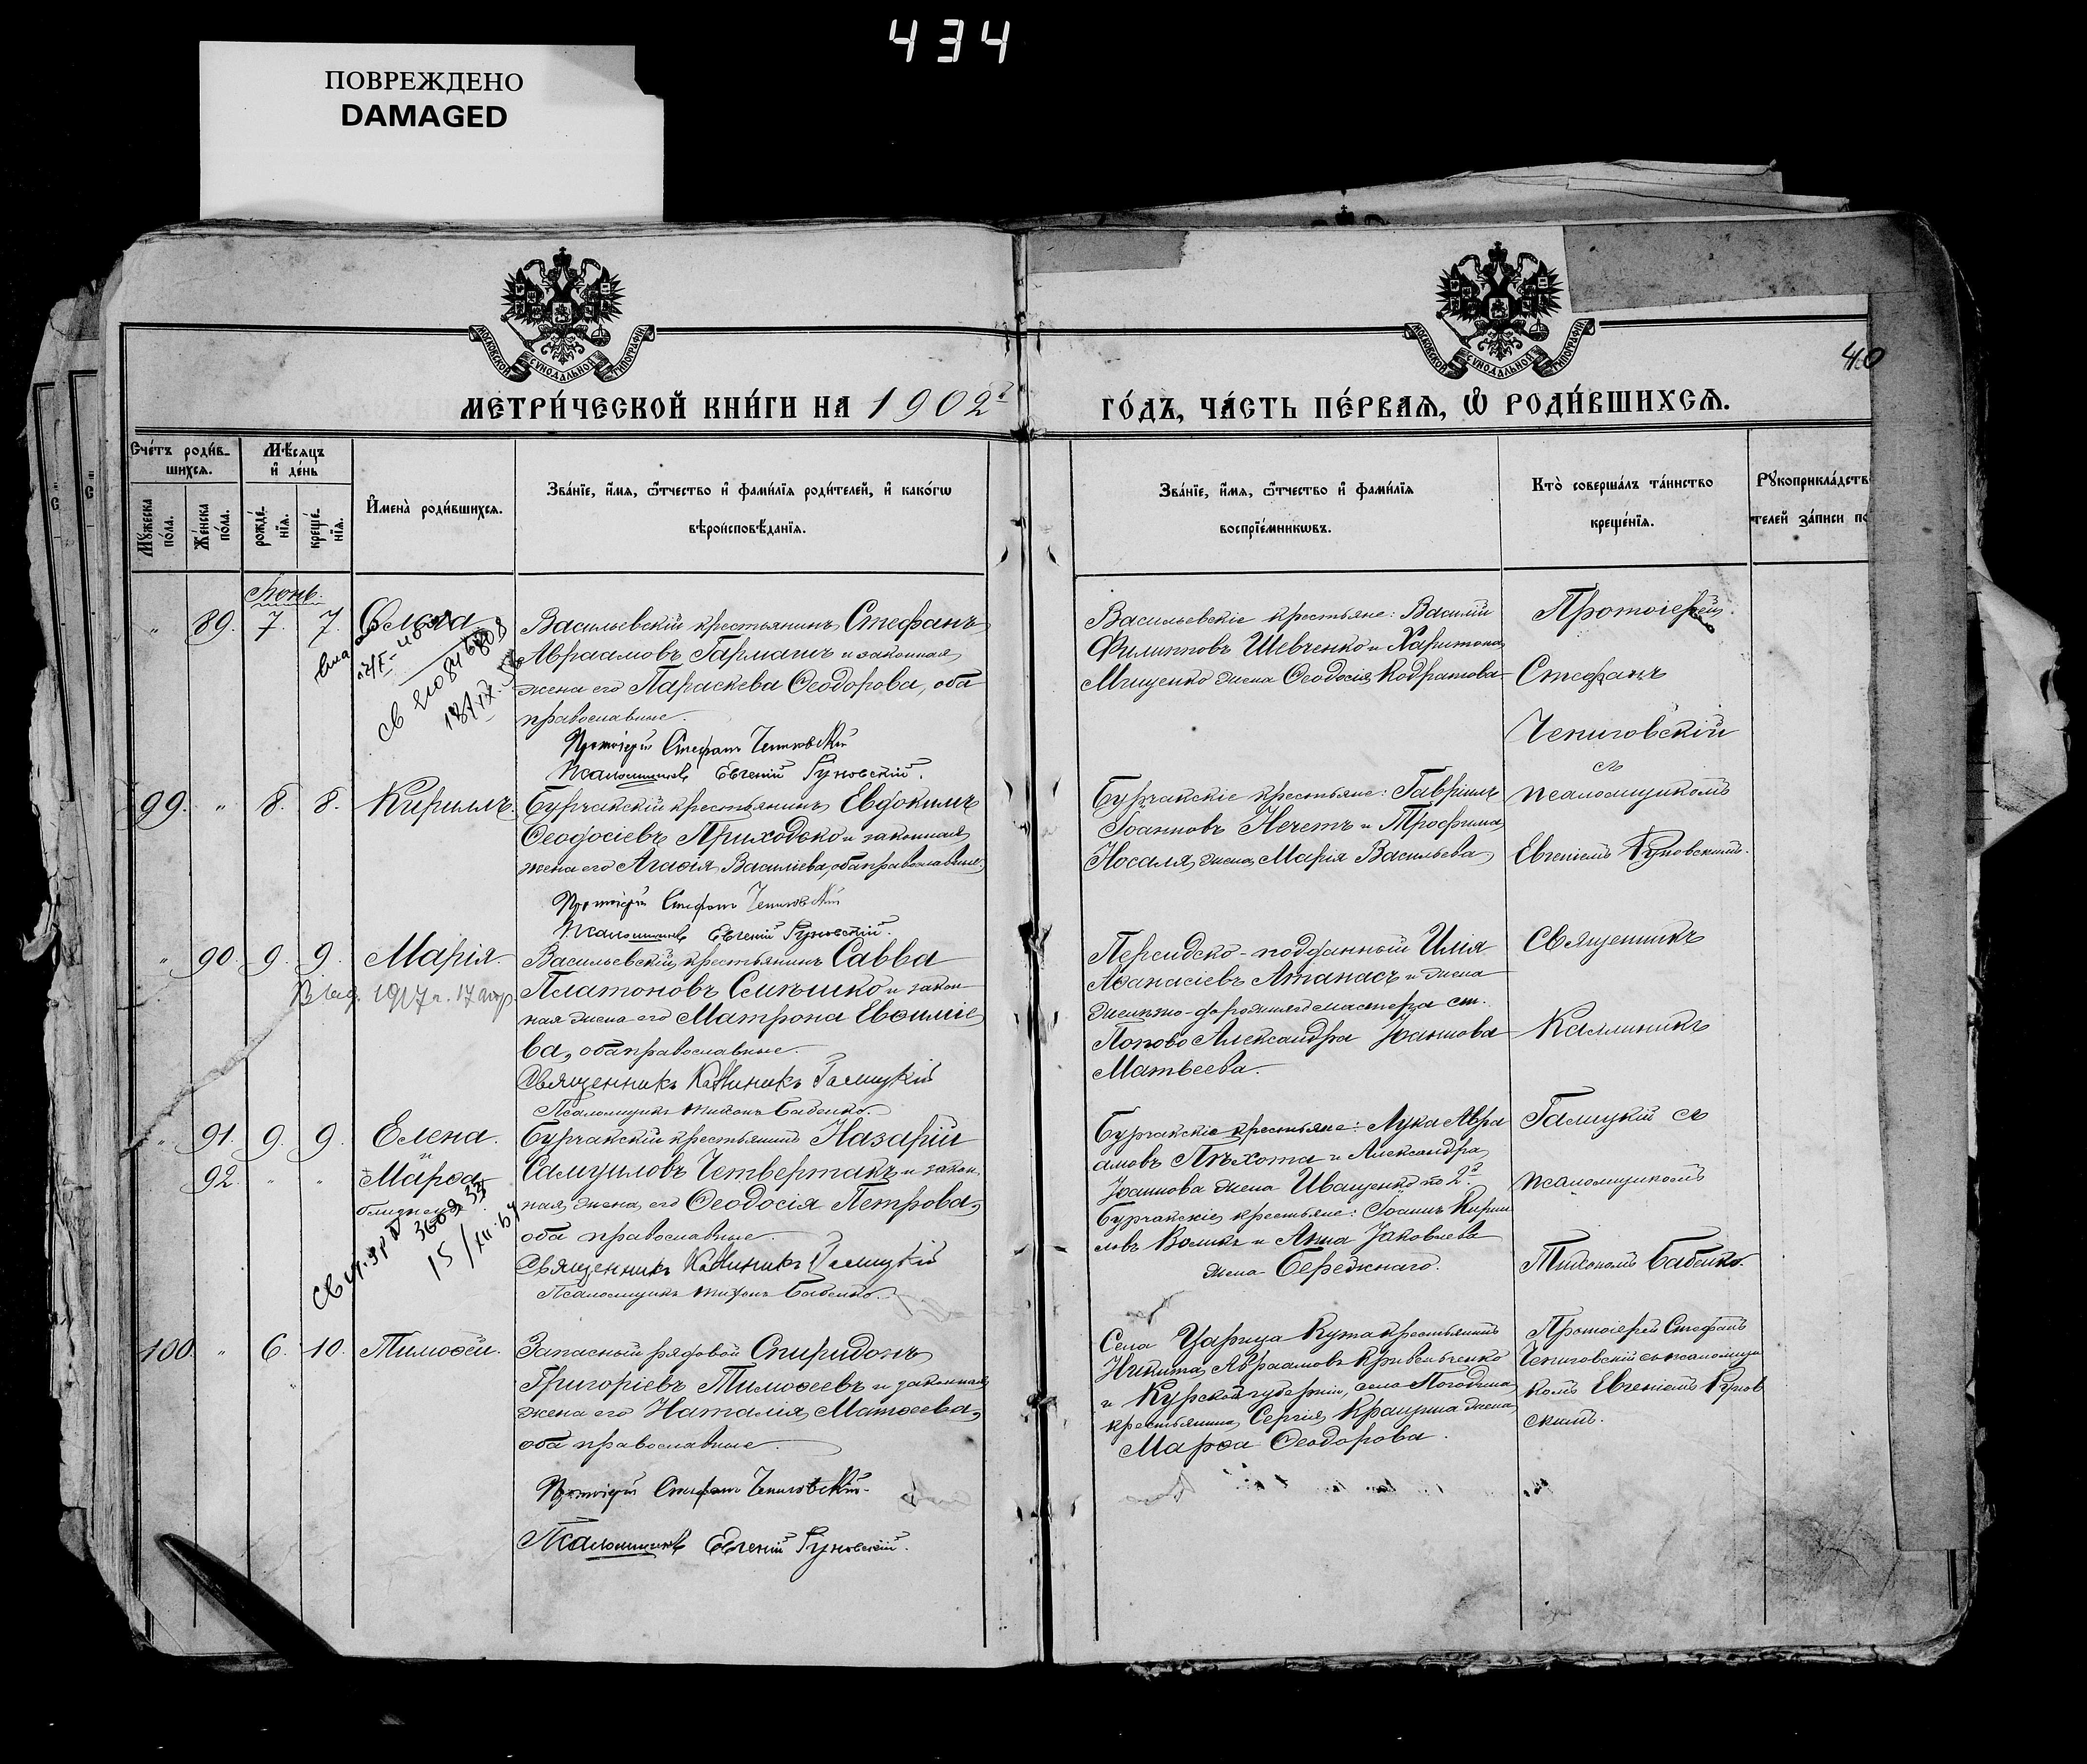 434
ПОВРЕЖДЕНО
DAMAGED
МОСКОВСКОЙ СѴНОДАЛЬНОЙ ТИПОГРАФІИ
МОСКОВСКОЙ СѴНОДАЛЬНОЙ ТИПОГРАФІИ
40
МЕТРИ́ЧЕСКОЙ КНИ́ГИ НА 1902 г
ГО́ДЪ, ЧА́СТЬ ПЕ́РВАѦ, Ѡ҆ РОДИ́ВШИХСѦ.
Сче́тъ роди́в-
шихсѧ.
Мѣ́сѧцъ
и҆ де́нь
Мꙋ́жеска
по́ла.
Же́нска
по́ла.
рожде́-
нїѧ.
креще́-
нїѧ.
И҆мена̀ роди́вшихсѧ.
Зва́нїе, и҆́мѧ, ѻ҆́тчество и҆ фами́лїѧ роди́телей, и҆ како́гѡ
вѣроисповѣ́данїѧ.
Зва́нїе, и҆́мѧ, ѻ҆́тчество и҆ фами́лїѧ
воспрїе́мникѡвъ.
Кто̀ соверша́лъ та́инство
креще́нїѧ.
Рꙋкоприкла́дств
телей за́писи по
Іюнь.
" 89. 7. 7.
Васильевскій крестьянинъ Стефанъ
Авраамовъ Гармашъ и законная
жена его Параскева Ѳеодорова, оба
православные.
Протоіерей Стефанъ Чепиговскій
Псаломщикъ Евгеній Руновскій.
Васильевскіе крестьяне: Василій
Филипповъ Шевченко и Харитона
Мищенко жена Ѳеодосія Кодратова
Протоіерей
Стефанъ
Чепиговскій
съ
псаломщикомъ
Евгеніемъ Руновскимъ.
99. " 8. 8. Кириллъ.
Бурчакскій крестьянинъ Евдокимъ
Ѳеодосіевъ Приходько и законная
жена его Агаѳія Васильева, оба православные
Протоіерей Стефанъ Чепиговскій
Псаломщикъ Евгеній Руновскій.
Бурчакскіе крестьяне: Гавріилъ
Іоанновъ Нечетъ и Трофима
Носаля жена Марія Васильева
" 90. 9. 9. Марія.
1917 г. 17
Васильевскій крестьянинъ Савва
Платоновъ Семѣшко и закон
ная жена его Матрона Евѳиміе
ва, оба православные.
Священникъ Каллиникъ Галицкій
Псаломщикъ Тихонъ Бабенко.
Персидско-подданный Илія
Аѳанасіевъ Атанасъ и жена
ст.
Попово Александра Іоаннова
Матвеева.
Священникъ
Каллиникъ
Галицкій съ
псаломщикомъ
Тихономъ Бабенко.
" 91. 9. 9. Елена.
и
92. " " Марѳа
близнецы
15/XII-64
Бурчакскій крестьянинъ Назарій
Самуиловъ Четвертакъ и закон
ная жена его Ѳеодосія Петрова,
оба православные.
Священникъ Каллиникъ Галицкій
Псаломщикъ Тихонъ Бабенко.
Бурчакскіе крестьяне: Лука Авра
амовъ Пѣхота и Александра
Іоаннова жена Иващенко по 2й
Бурчакскіе крестьяне: Іоаннъ Кирил
ловъ Воликъ и Анна Іаковлева
жена Бережнаго.
100. " 6. 10. Тимоѳей.
Запасный рядовой Спиридонъ
Григоріевъ Тимоѳеевъ и законная
жена его Наталія Матѳеева,
оба православные.
Протоіерей Стефанъ Чепиговскій.
Псаломщикъ Евгеній Руновскій.
Села Царица Кута крестьянинъ
Никита Авраамовъ
и Курской губерніи, села
крестьянина Сергія жена
Марѳа Ѳеодорова.
Протоіерей Стефанъ
Чепиговскій съ псаломщи
комъ Евгеніемъ Рунов
скимъ.